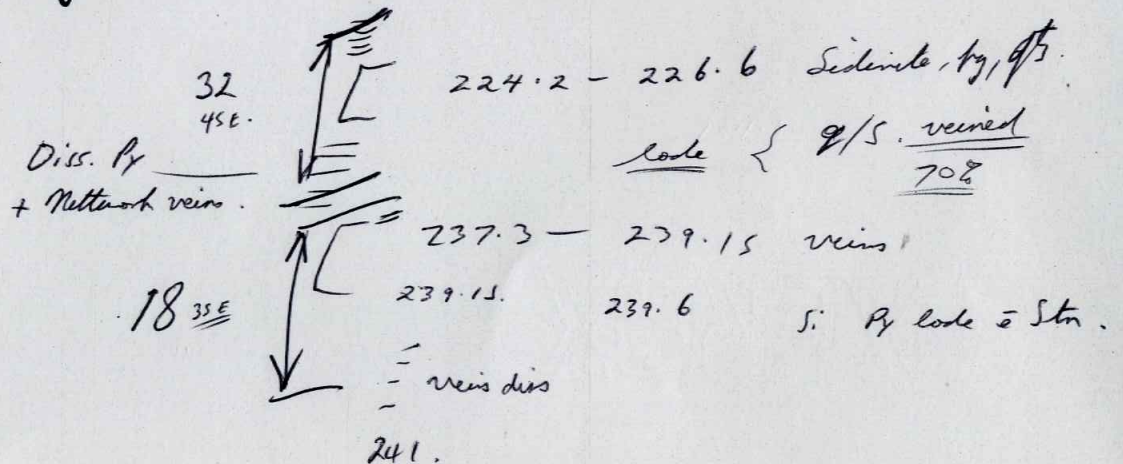 32
45E.
224.2 – 226.6 Siderite, py, qtz.
Diss. Py
+ Network veins.
lode { q/s. veined
70%
237.3 — 239.15 veins
18 35E
239.15. 239.6 Si Py lode c̄ Stn.
- veins diss
241.